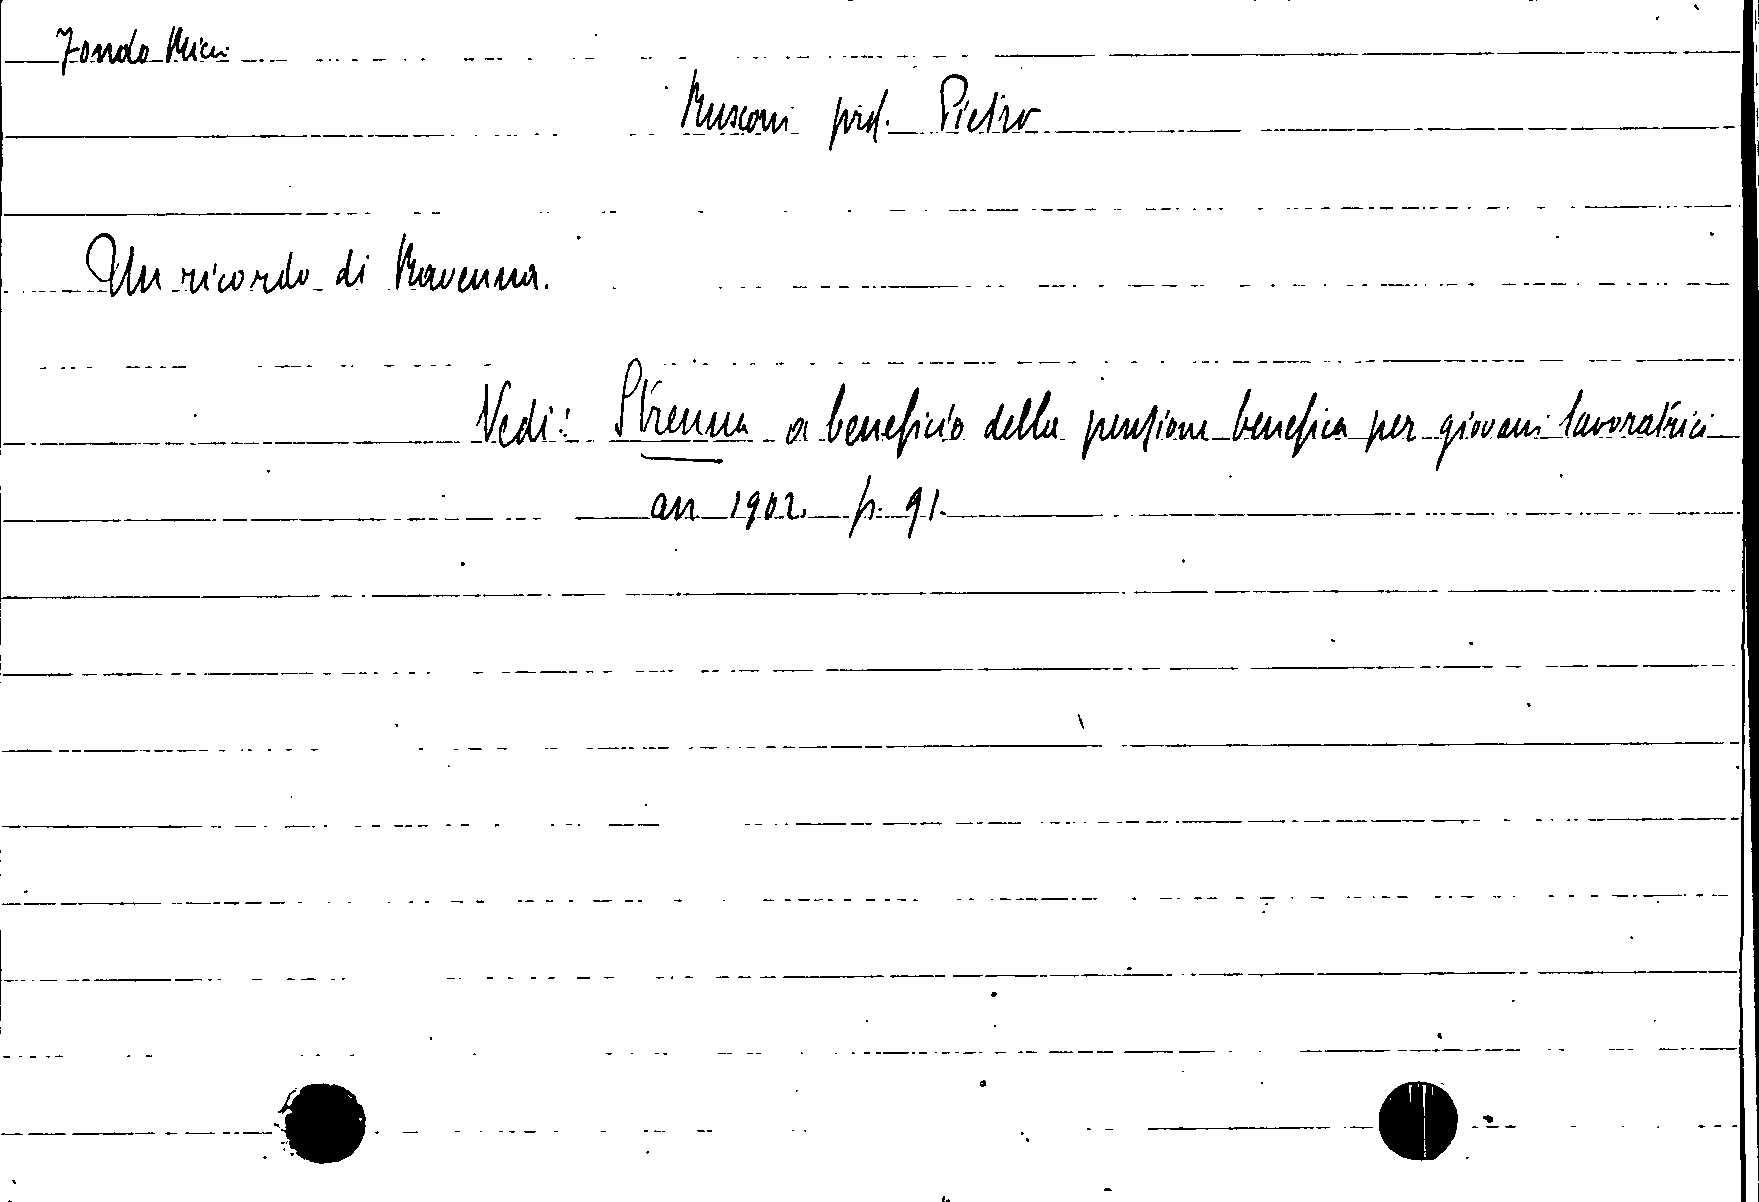 Fondo Ricci
Rusconi prof. Pietro
Un ricordo di Ravenna.
Vedi: Strenna a beneficio della pensione benefica per giovani lavoratrici
an 1902. p. 91.